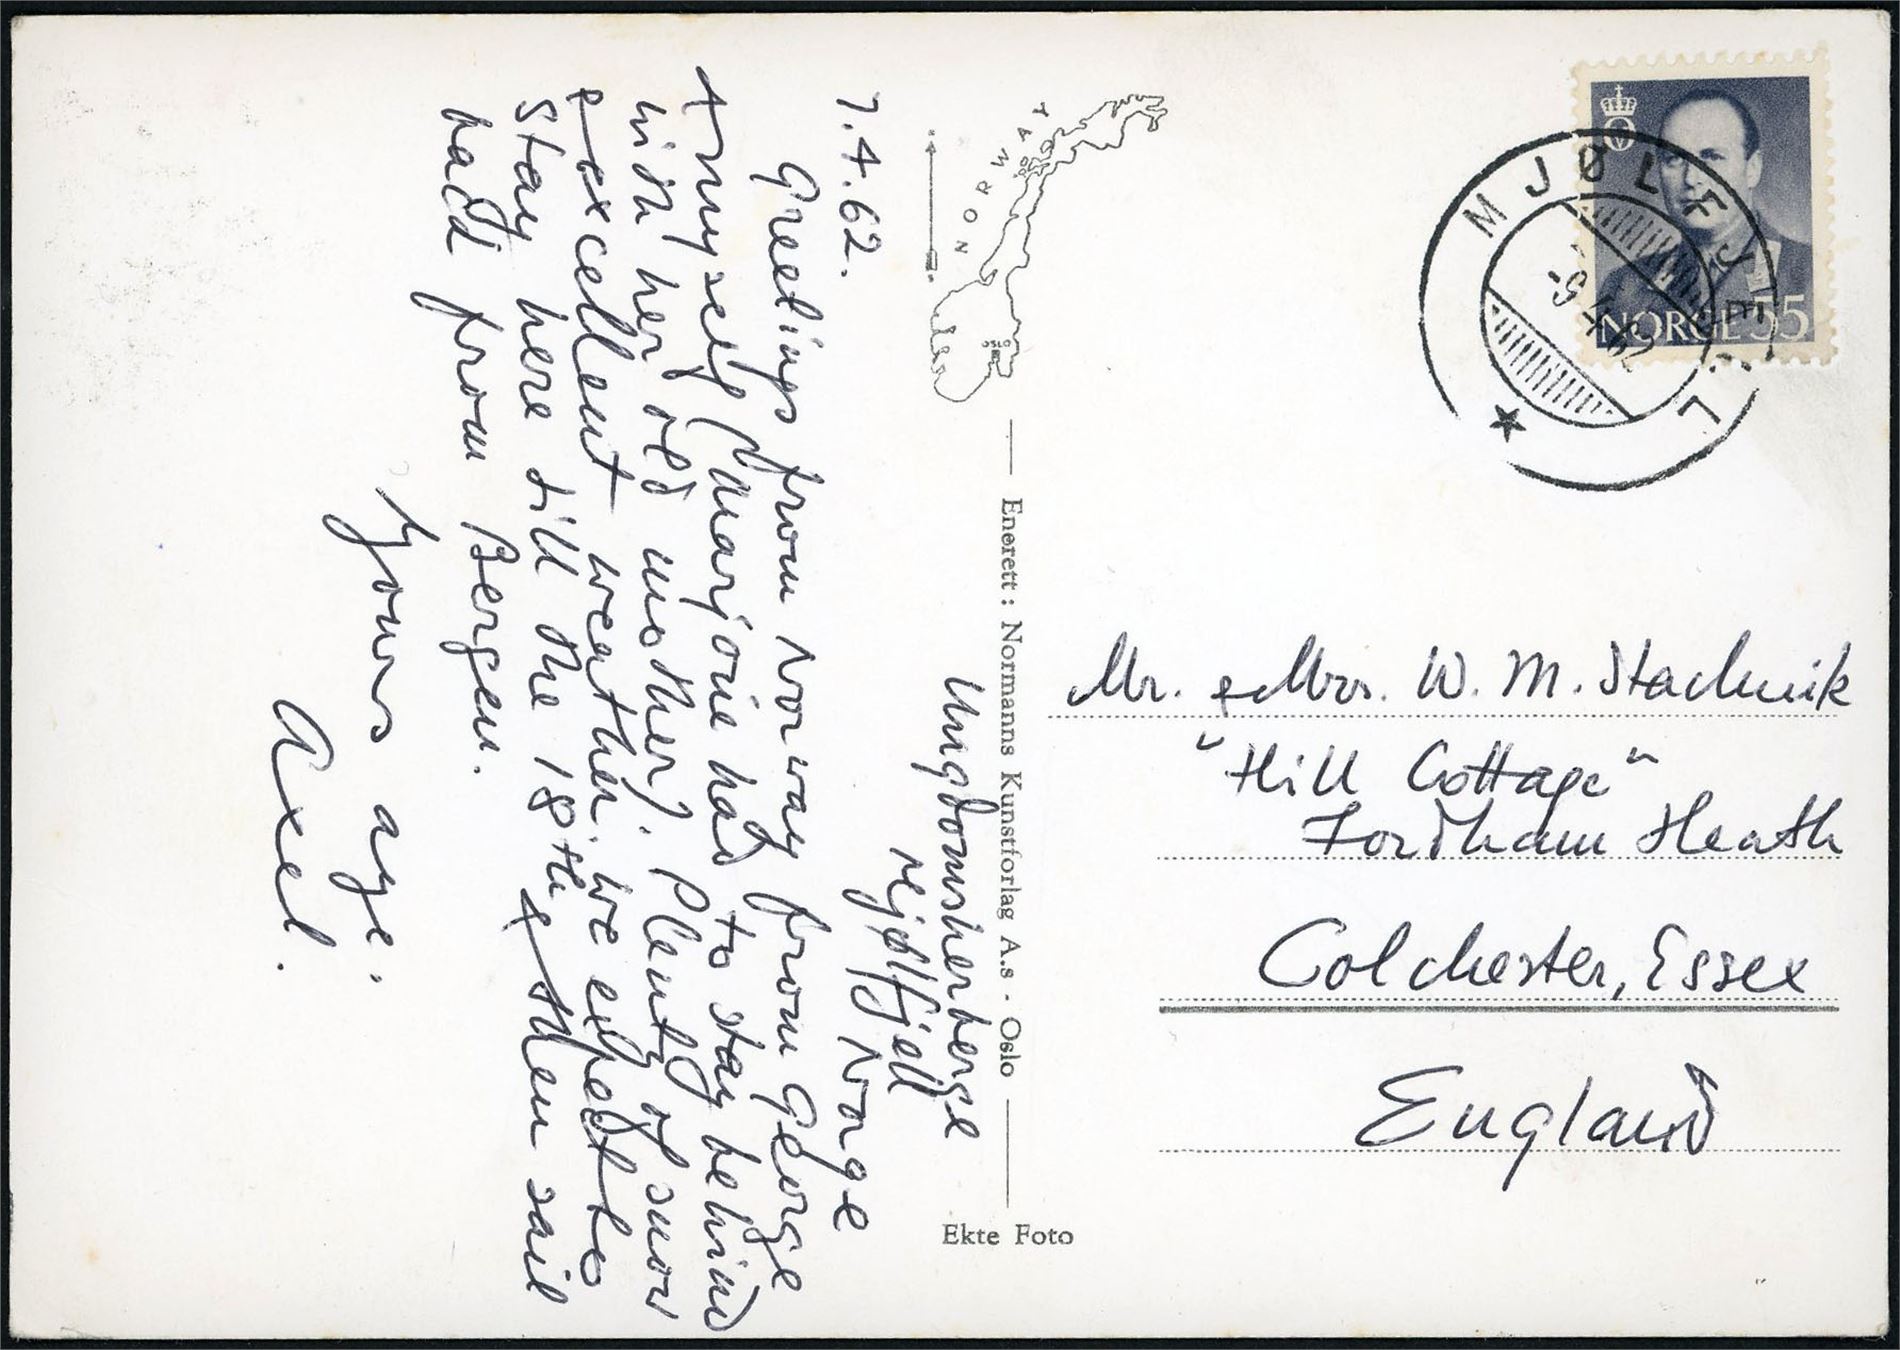 7.4.62.
Ungdomsherberge
Mjølfjell Norge
Greetings from Norway from George
& myself (Marjorie had to stay behind
with her old mother). Plenty of snow
& excellent weather. We expect to
stay here till the 18th & then sail
back from Bergen.
Yours aye.
Axel.
NORWAY
OSLO
Enerett: Normanns Kunstforlag A.s - Oslo
Ekte Foto
NORGE 55
MJØLFJELL
-9 4 62
Mr. & Mrs. W. M. Stachnik
"Hill Cottage"
Fordham Heath
Colchester, Essex
England